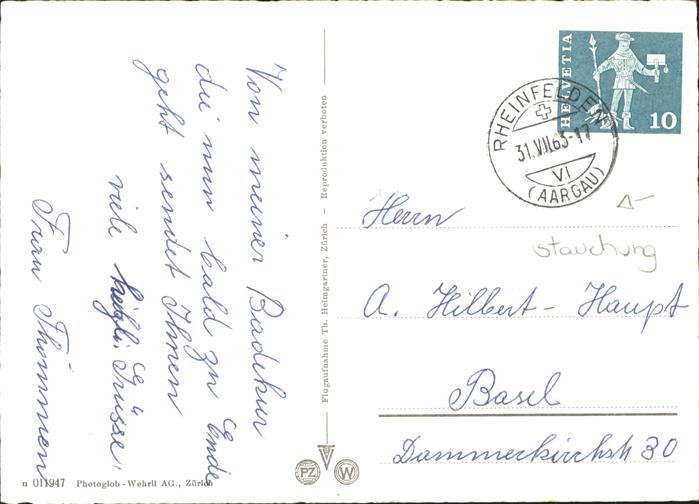 Von meiner Badekur
die nun bald zu Ende
geht sendet Ihnen
viele herzl. Grüsse,
Frau Thommen
Flugaufnahme Th. Heimgartner, Zürich — Reproduktion verboten
n 011947 Photoglob-Wehrli AG., Zürich
PZ
W
HELVETIA
10
RHEINFELDEN
31.VII.63-17
VI
(AARGAU)
Herrn
Stauchung
A. Hilbert-Haupt
Basel
Dammerkirchstr 30